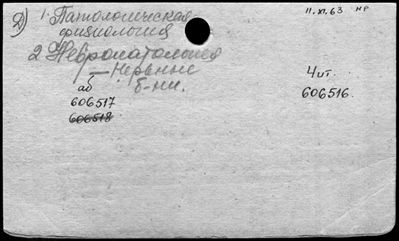 Д) 1. Патологическая
физиология
11.XI.63 НР
2. Невропатология
— Нервные
б-ни.
Чит.
аб
606516.
606517
606518